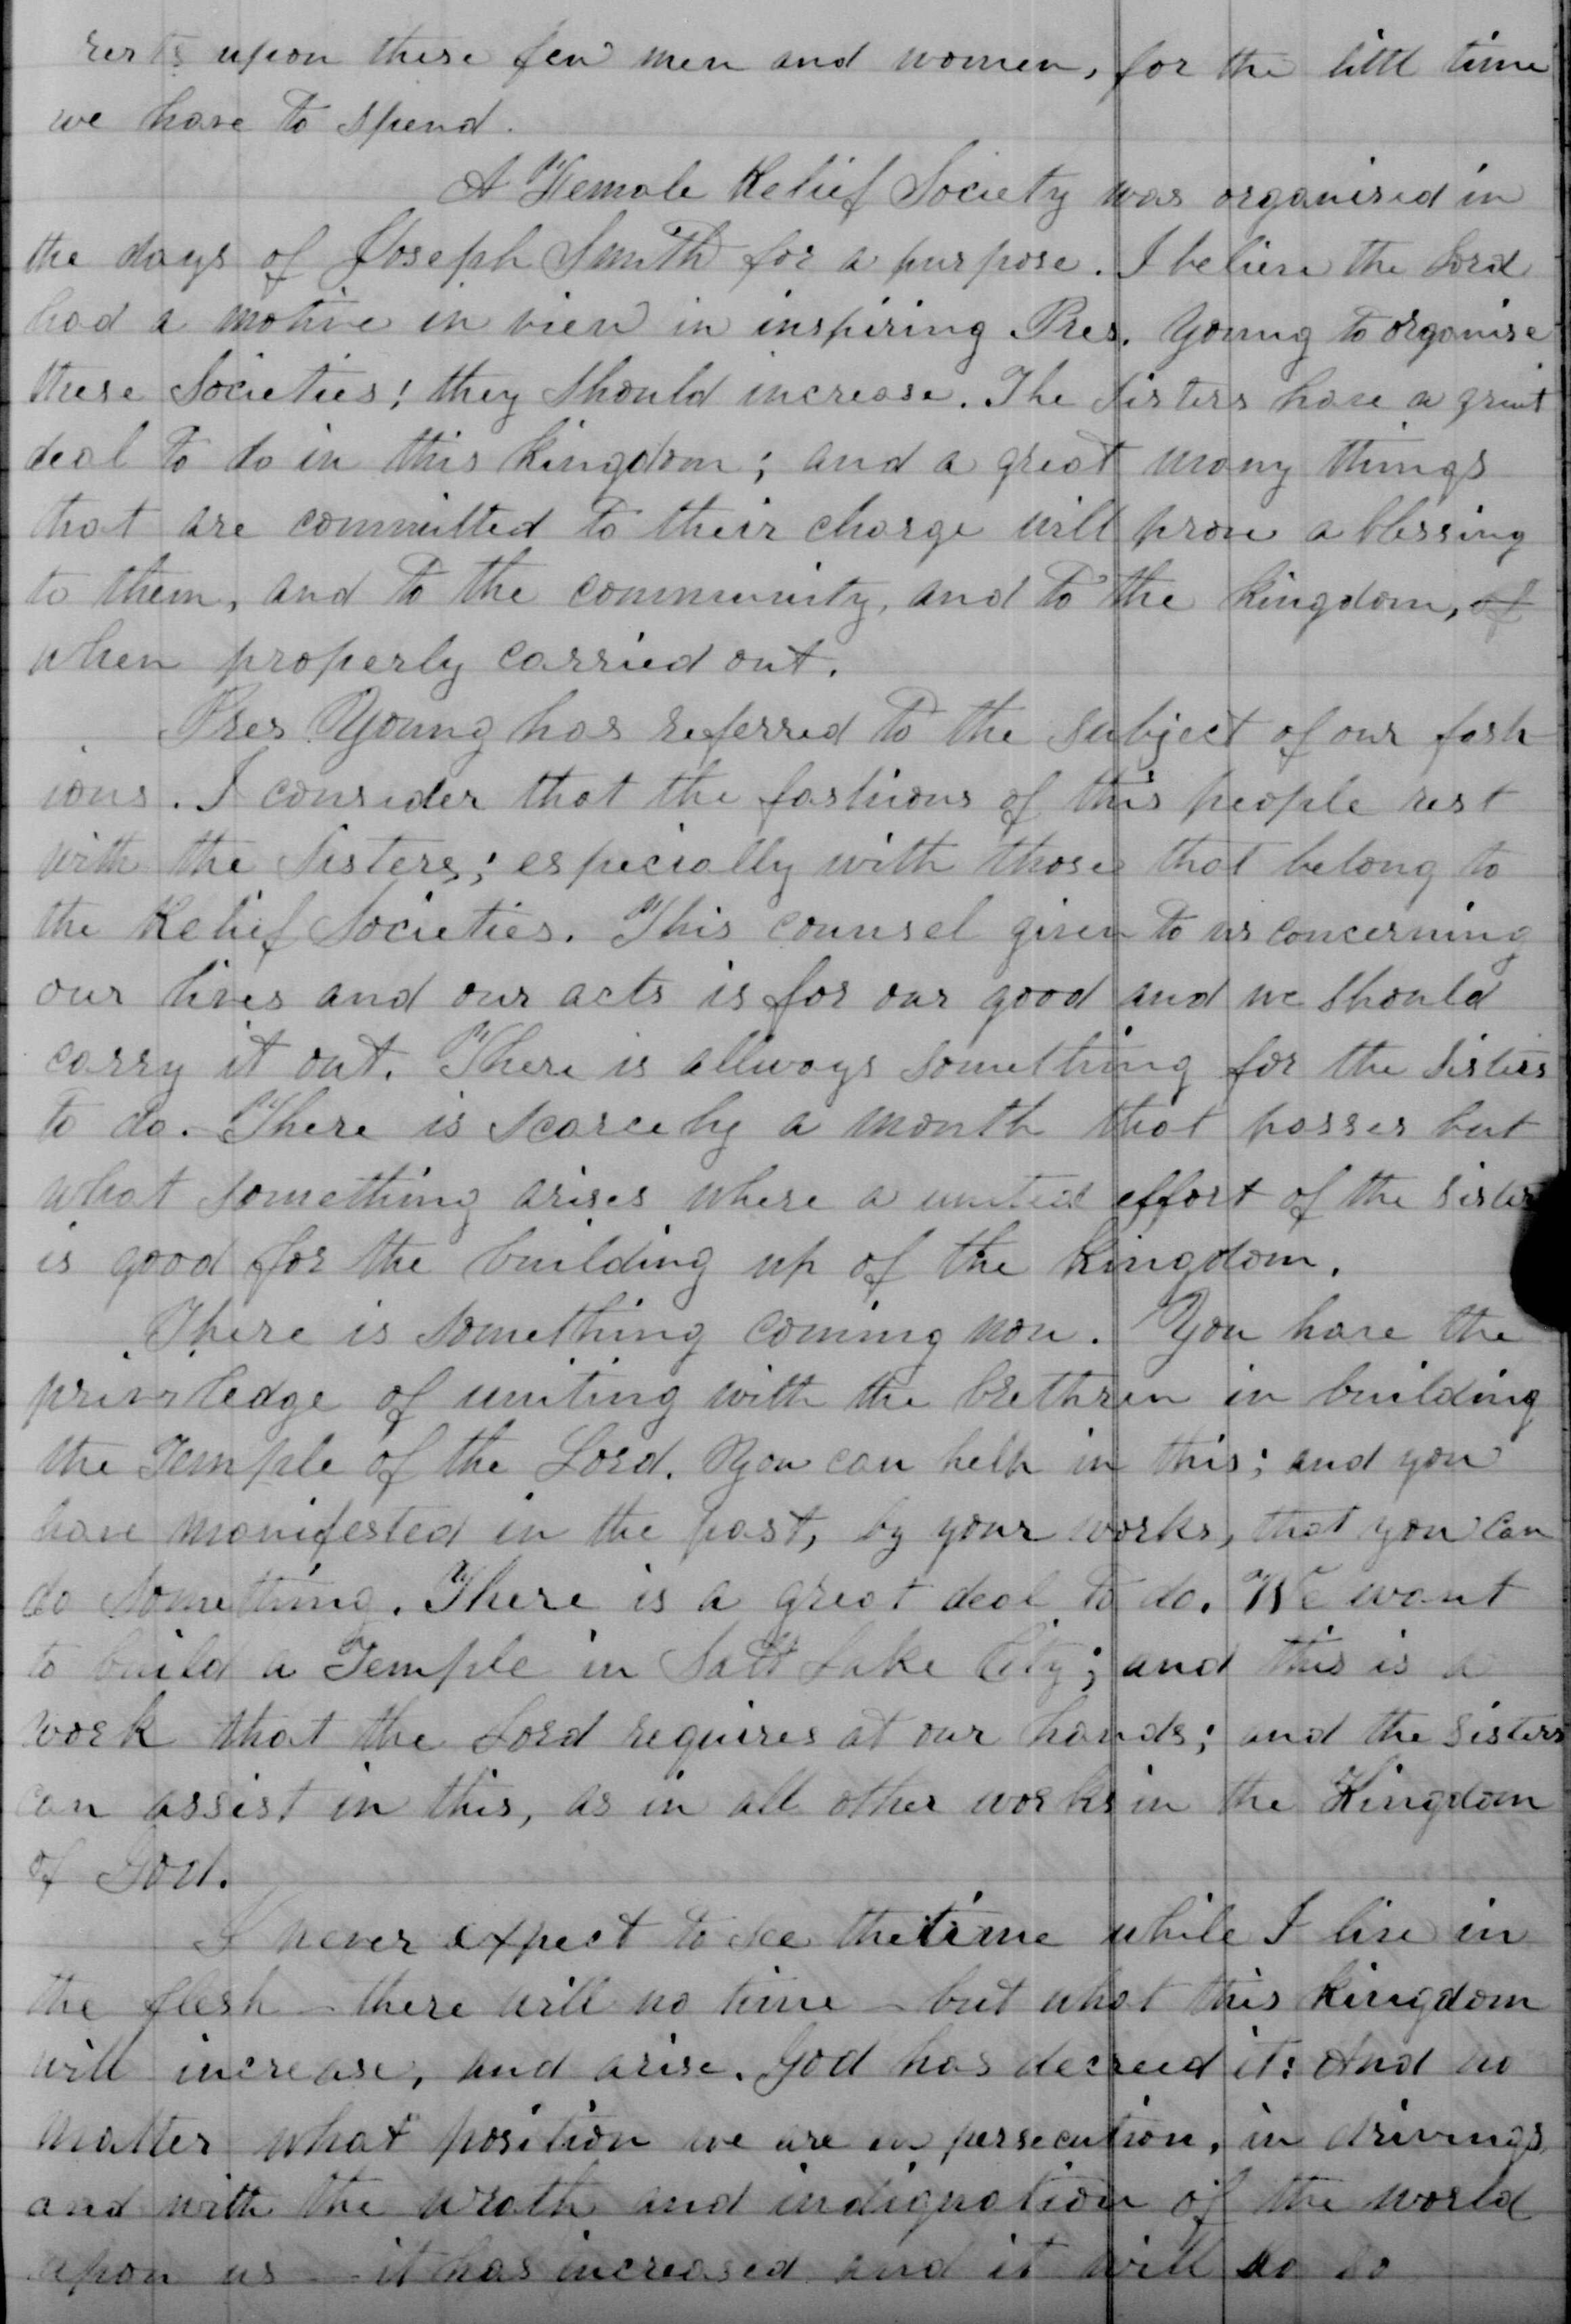 rests upon these few men and women, for the littl time
we have to spend.
A Female Relief Society was organised in
the days of Joseph Smith for a purpose. I believe the Lord
had a motive in view in inspiring Pres. Young to organise
these Societies; they should increase. The Sisters have a great
deal to do in this kingdom; and a great many things
that are committed to their charge will prove a blessing
to them, and to the community, and to the kingdom, of
when properly carried out.
Pres Young has referred to the subject of our fash
ions. I consider that the fashions of this people rest
with the Sisters; especially with those that belong to
the Relief Societies. This counsel given to us concerning
our lives and our acts is for our good and we should
carry it out. There is allways something for the Sisters
to do. There is scarcely a month that passes but
what something arises where a united effort of the sisters
is good for the building up of the kingdom.
There is something coming now. You have the
priviledge of uniting with the brethren in building
the Temple of the Lord. You can help in this; and you
have manifested in the past, by your works, that you can
do something. There is a great deal to do. We want
to build a Temple in Salt Lake City; and this is a
work that the Lord requires at our hands; and the sisters
can assist in this, as in all other works in the Kingdom
of God.
I never expect to see the time while I live in
the flesh – there will no time – but what this kingdom
will increase, and arise. God has decreed it: And no
matter what position we are in persecution, in drivings
and with the wrath and indignation of the world
upon us – it has increased and it will do so